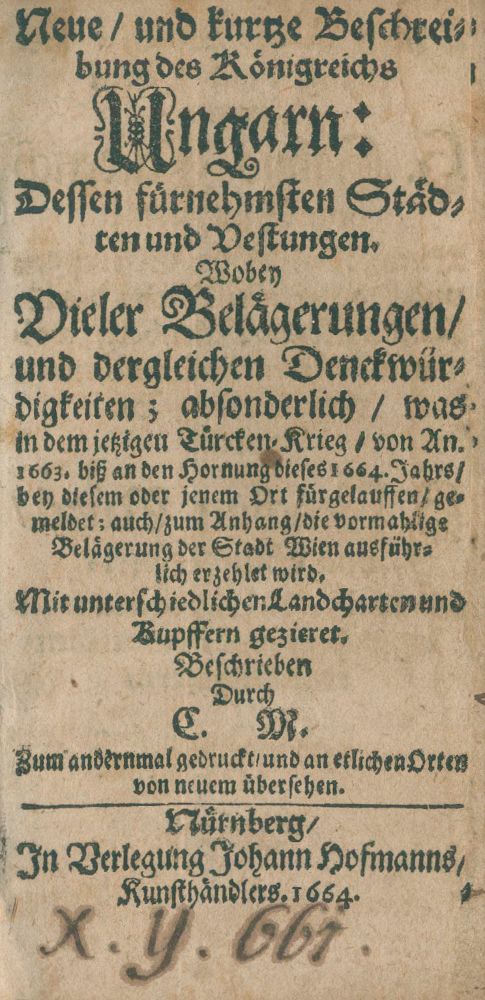 Neue / und kurtze Beschrei-
bung des Königreichs
Ungarn:
Dessen fürnehmsten Städ-
ten und Vestungen.
Wobey
Vieler Belägerungen /
und dergleichen Denckwür-
digkeiten ; absonderlich / was
in dem jetzigen Türcken-Krieg / von An.
1663. biß an den Hornung dieses 1664. Jahrs /
bey diesem oder jenem Ort fürgelauffen / ge-
meldet ; auch / zum Anhang / die vormahlige
Belägerung der Stadt Wien ausführ-
lich erzehlet wird.
Mit unterschiedlichen Landcharten und
Kupffern gezieret.
Beschrieben
Durch
C. M.
Zum andernmal gedruckt / und an etlichen Orten
von neuem übersehen.
Nürnberg /
In Verlegung Johann Hofmanns /
Kunsthändlers. 1664.
X. y. 661.